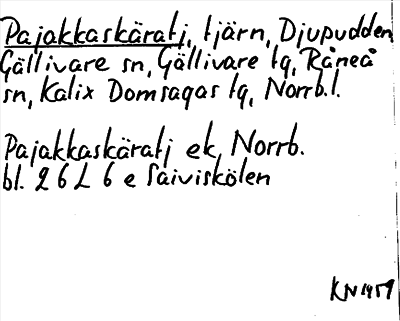 Pajakkaskäratj, tjärn, Djupudden
Gällivare sn, Gällivare tg, Råneå
sn, Kalix Domsagas tg, Norrb. l.
Pajakkaskäratj ek, Norrb.
bl. 26 L 6 e Saiviskölen
KN 1959